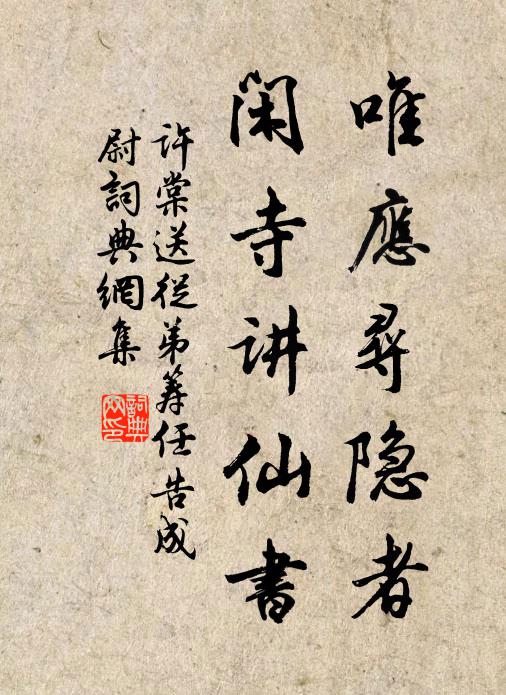 唯應尋隐者
閑寺讲仙書
許棠送從弟筹任告成
尉詞典網集
詞典网印